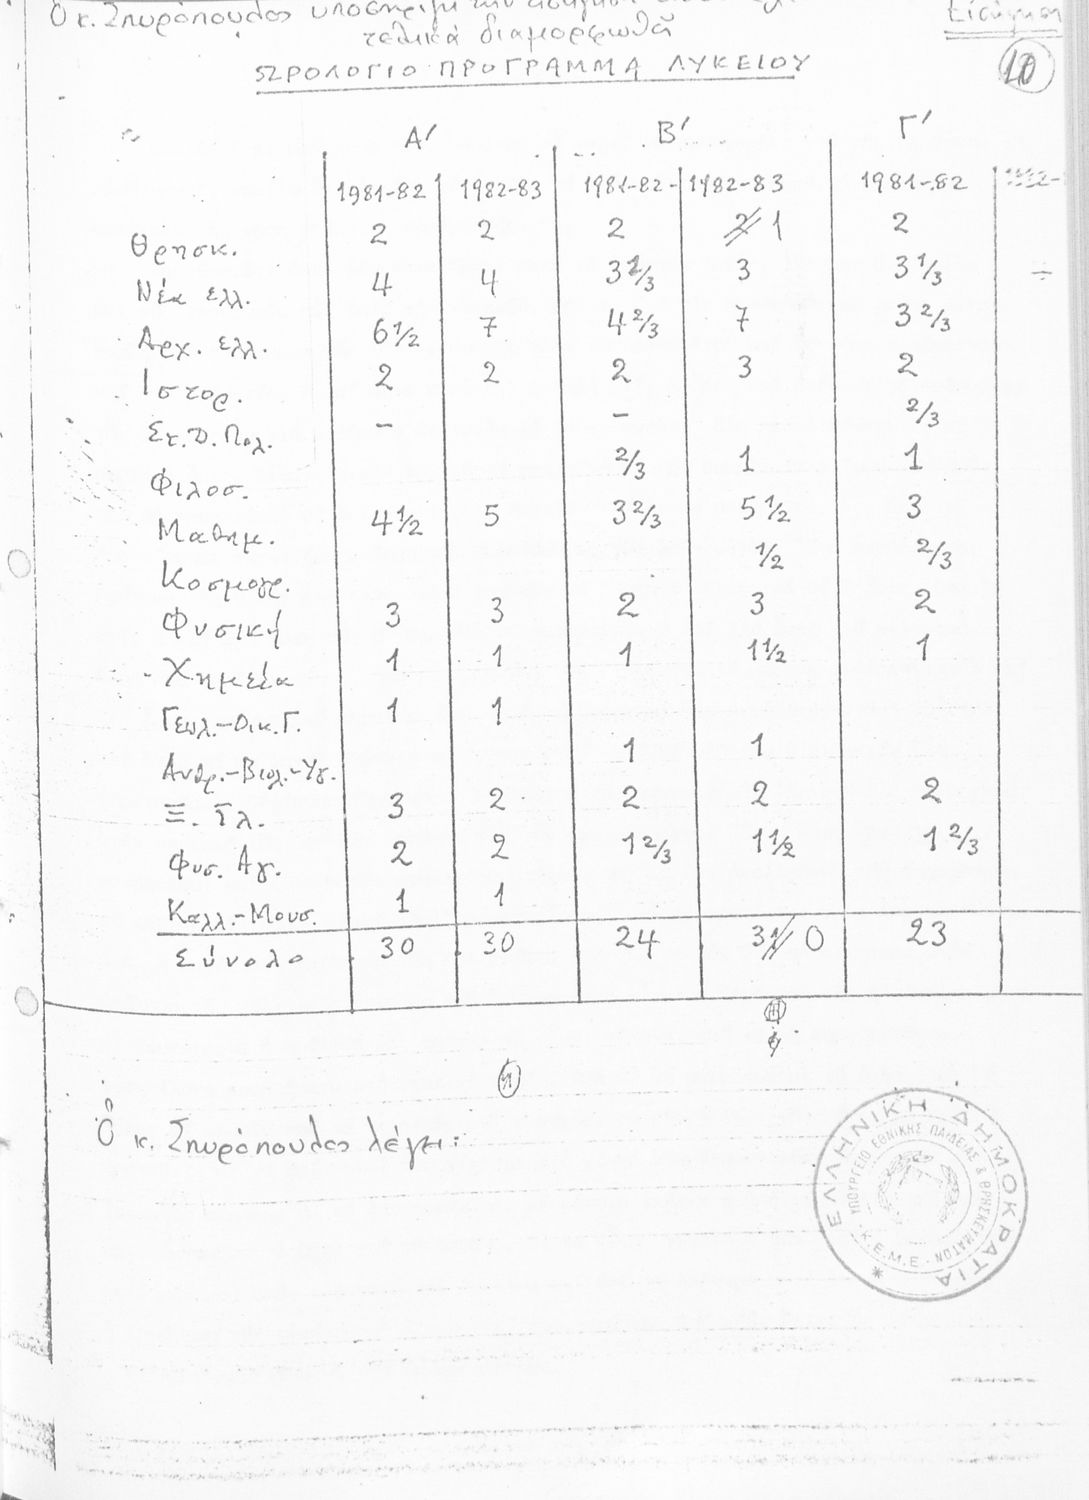 Ὁ κ. Σπυρόπουλος υποστηρίζει την εισήγηση
τελικά διαμορφωθῆ
Εἰσήγηση
10
ΩΡΟΛΟΓΙΟ ΠΡΟΓΡΑΜΜΑ ΛΥΚΕΙΟΥ
Α′ Β′ Γ′
1981-82 1982-83 1981-82 - 1982-83 1981-82
Θρησκ. 2 2 2 2 1 2
Νέα ελλ. 4 4 3 2/3 3 3 1/3
Αρχ. ελλ. 6 1/2 7 4 2/3 7 3 2/3
Ιστορ. 2 2 2 3 2
Στ.Δ.Πολ. - - 2/3
Φιλοσ. 2/3 1 1
Μαθημ. 4 1/2 5 3 2/3 5 1/2 3
Κοσμογρ. 1/2 2/3
Φυσική 3 3 2 3 2
Χημεία 1 1 1 1 1/2 1
Γεωλ.-Οικ.Γ. 1 1
Ανθρ.-Βιολ.-Υγ. 1 1
Ξ. Γλ. 3 2 2 2 2
Φυσ. Αγ. 2 2 1 2/3 1 1/2 1 2/3
Καλλ.-Μουσ. 1 1
Σύνολο 30 30 24 31 0 23
Ὁ κ. Σπυρόπουλος λέγει:
ΕΛΛΗΝΙΚΗ ΔΗΜΟΚΡΑΤΙΑ
ΥΠΟΥΡΓΕΙΟ ΕΘΝΙΚΗΣ ΠΑΙΔΕΙΑΣ & ΘΡΗΣΚΕΥΜΑΤΩΝ
Κ.Ε.Μ.Ε.